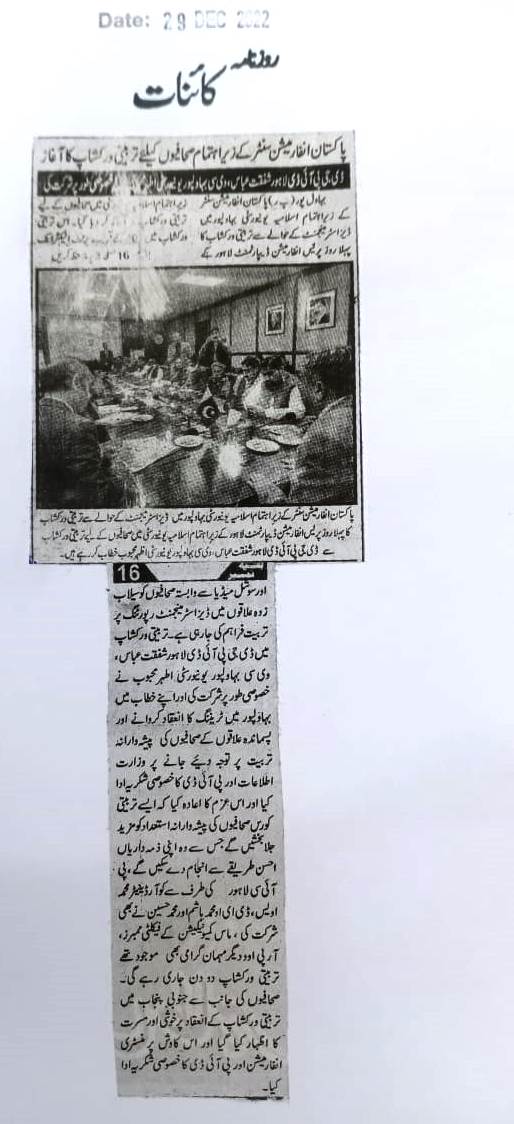 Date: 29 DEC 2022
روزنامہ
کائنات
پاکستان انفارمیشن سنٹر کے زیر اہتمام صحافیوں کیلئے تربیتی ورکشاپ کا آغاز
ڈی جی پی آئی ڈی لاہور شفقت عباس، وی سی بہاولپور یونیورسٹی اطہر خصوصی طور پر شرکت کی
بہاول پور (پ ر) پاکستان انفارمیشن سنٹر
کے زیر اہتمام اسلامیہ یونیورسٹی بہاولپور میں
ڈیزاسٹر مینجمنٹ کے حوالے سے تربیتی ورکشاپ کا
پہلا روز پریس انفارمیشن ڈیپارٹمنٹ لاہور کے
زیر اہتمام اسلامیہ یونیورسٹی میں صحافیوں کے لیے
تربیتی ورکشاپ کر دیا گیا۔ اس تربیتی
ورکشاپ میں پرنٹ، الیکٹرانک
16
پاکستان انفارمیشن سنٹر کے زیر اہتمام اسلامیہ یونیورسٹی بہاولپور میں ڈیزاسٹر مینجمنٹ کے حوالے سے تربیتی ورکشاپ
کا پہلا روز پریس انفارمیشن ڈیپارٹمنٹ لاہور کے زیر اہتمام اسلامیہ یونیورسٹی میں صحافیوں کے لیے تربیتی ورکشاپ
سے ڈی جی پی آئی ڈی لاہور شفقت عباس، وی سی بہاولپور یونیورسٹی اطہر محبوب خطاب کر رہے ہیں۔
بقیہ نمبر 16
اور سوشل میڈیا سے وابستہ صحافیوں کو سیلاب
زدہ علاقوں میں ڈیزاسٹر مینجمنٹ رپورٹنگ پر
تربیت فراہم کی جا رہی ہے۔ تربیتی ورکشاپ
میں ڈی جی پی آئی ڈی لاہور شفقت عباس،
وی سی بہاولپور یونیورسٹی اطہر محبوب نے
خصوصی طور پر شرکت کی اور اپنے خطاب میں
بہاولپور میں ٹریننگ کا انعقاد کروانے اور
پسماندہ علاقوں کے صحافیوں کی پیشہ وارانہ
تربیت پر توجہ دیئے جانے پر وزارت
اطلاعات اور پی آئی ڈی کا خصوصی شکریہ ادا
کیا اور اس عزم کا اعادہ کیا کہ ایسے تربیتی
کورس صحافیوں کی پیشہ وارانہ استعداد کو مزید
جلا بخشیں گے جس سے وہ اپنی ذمہ داریاں
احسن طریقے سے انجام دے سکیں گے، پی
آئی سی لاہور کی طرف سے کوآرڈینیٹر محمد
اویس، ڈی ای او محمد ہاشم اور محمد حسین نے بھی
شرکت کی، ماس کمیونیکیشن کے فیکلٹی ممبرز،
آر پی او اور دیگر مہمان گرامی بھی موجود تھے
تربیتی ورکشاپ دو دن جاری رہے گی۔
صحافیوں کی جانب سے جنوبی پنجاب میں
تربیتی ورکشاپ کے انعقاد پر خوشی اور مسرت
کا اظہار کیا گیا اور اس کاوش پر منسٹری
انفارمیشن اور پی آئی ڈی کا خصوصی شکریہ ادا
کیا۔